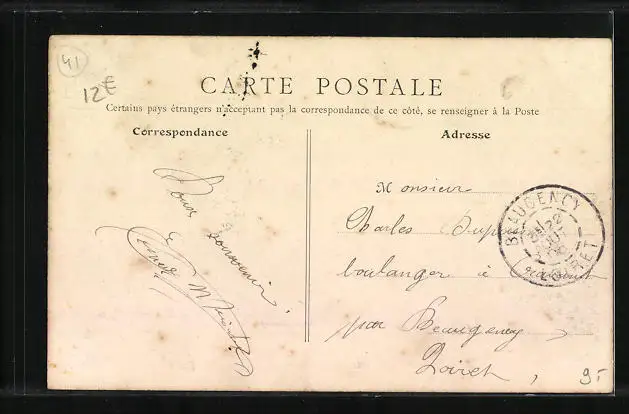 41
12€
CARTE POSTALE
Certains pays étrangers n'acceptant pas la correspondance de ce côté, se renseigner à la Poste
Correspondance
Adresse
Bon souvenir
Monsieur
Charles
boulanger à
par Beaugency
Loiret,
BEAUGENCY
22
LOIRET
9-